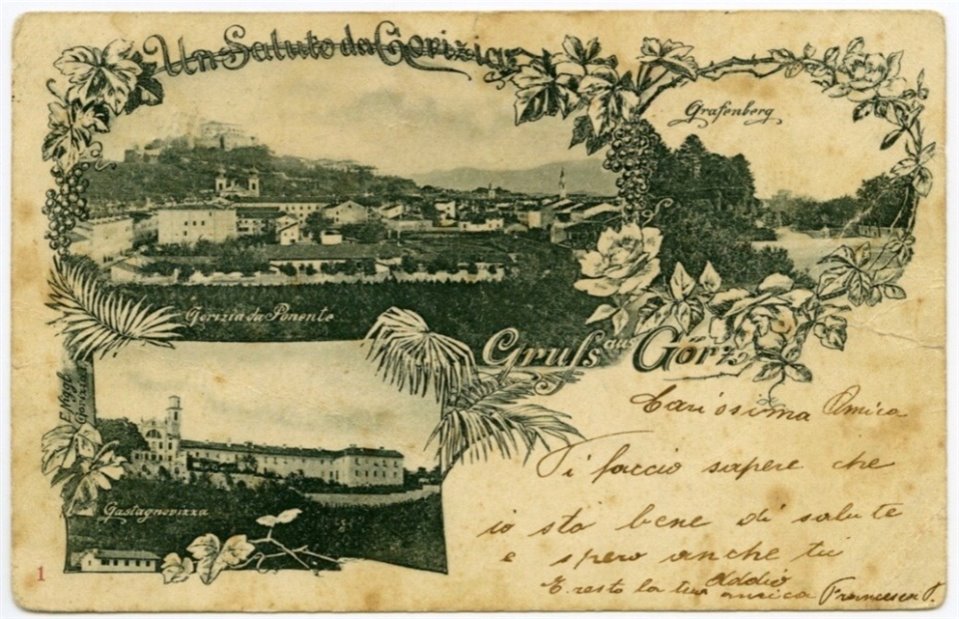 Un Saluto da Gorizia
Grafenberg
Gorizia da Ponente
Gruss aus Görz
Gorizia
Castagnovizza
1
Carissima Amica
Ti faccio sapere che
io sto bene di salute
e spero anche tu
Addio
E resto la tua amica Francesca P.